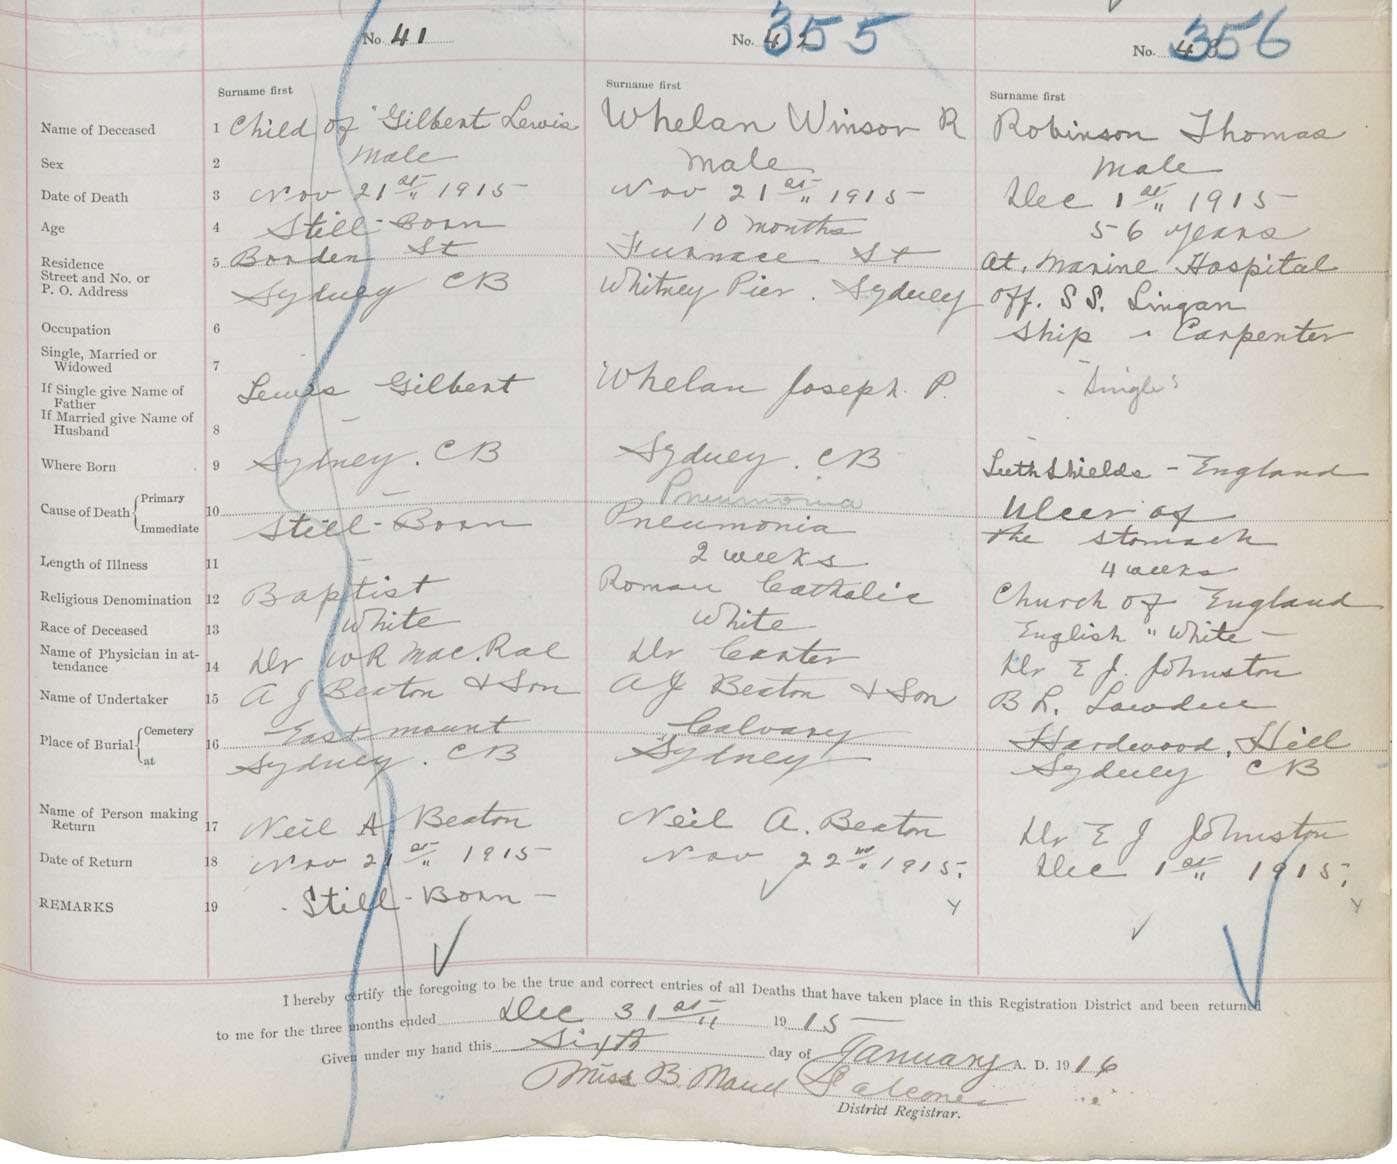 No. 41 No. 42 355 No. 43 356
Surname first Surname first Surname first
Name of Deceased 1 Child of "Gilbert Lewis Whelan Winsor R Robinson Thomas
Sex 2 Male Male Male
Date of Death 3 Nov 21st 1915 Nov 21st 1915 Dec 1st 1915
Age 4 Still-Born 10 months 56 years
Residence
Street and No. or
P. O. Address
5 Borden St Furnace St at. Marine Hospital
Sydney CB Whitney Pier. Sydney off. S S. Lingan
Occupation 6 Ship - Carpenter
Single, Married or
Widowed 7 - Single
If Single give Name of
Father
Lewis Gilbert Whelan Joseph. P.
If Married give Name of
Husband 8
Where Born 9 Sydney. CB Sydney. CB Shields - England
Cause of Death { Primary 10 Pneumonia Ulcer of
Immediate Still-Born Pneumonia the stomach
Length of Illness 11 2 weeks 4 weeks
Religious Denomination 12 Baptist Roman Catholic Church of England
Race of Deceased 13 White White English " White -
Name of Physician in at-
tendance 14 Dr W R Mac.Rae Dr Carter Dr E J. Johnston
Name of Undertaker 15 A J Beaton & Son A J Beaton & Son B L.
Place of Burial { Cemetery 16 East mount Calvary Hardwood, Hill
at Sydney. CB Sydney Sydney CB
Name of Person making
Return 17 Neil A Beaton Neil A. Beaton Dr E J Johnston
Date of Return 18 Nov 21st 1915 Nov 22nd 1915. Dec 1st 1915.
REMARKS 19 - Still-Born -
I hereby certify the foregoing to be the true and correct entries of all Deaths that have taken place in this Registration District and been returned
to me for the three months ended Dec 31st 1915
Given under my hand this Sixth day of January A. D. 1916
Miss B. Maud
District Registrar.